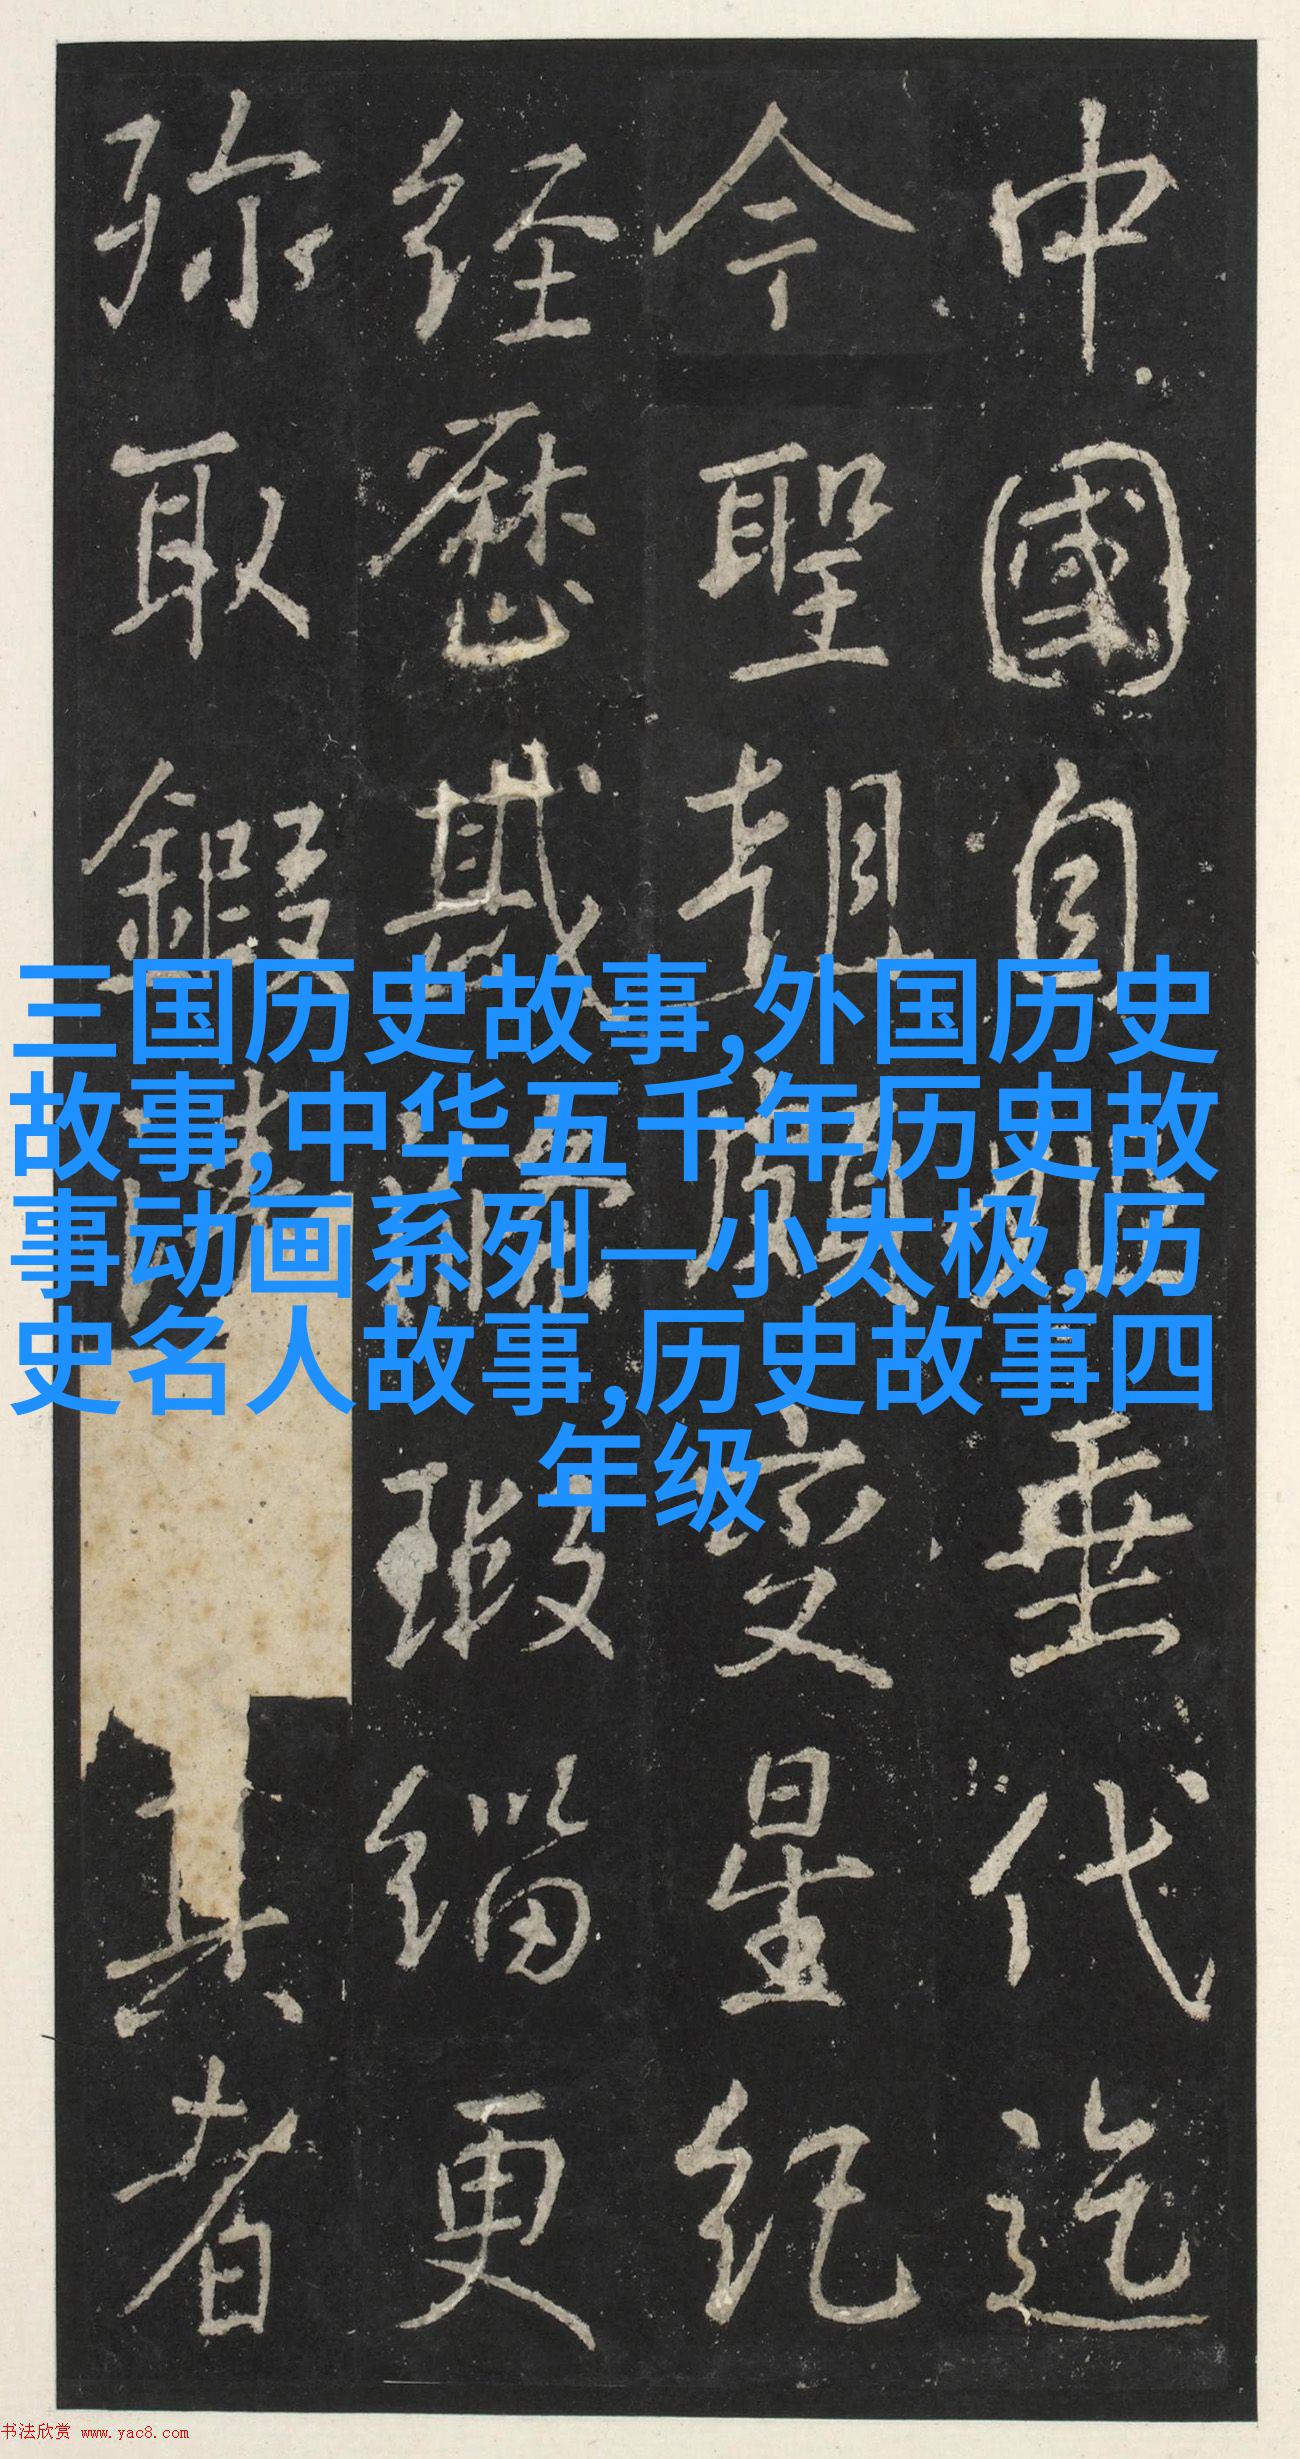 中國自□□垂代迄
今聖朝□□變星紀
经歷□□瑕緇更
弥取鍜□其者
三国历史故事,外国历史
故事,中华五千年历史故
事动画系列—小太极,历
史名人故事,历史故事四
年级
书法欣赏 www.yac8.com